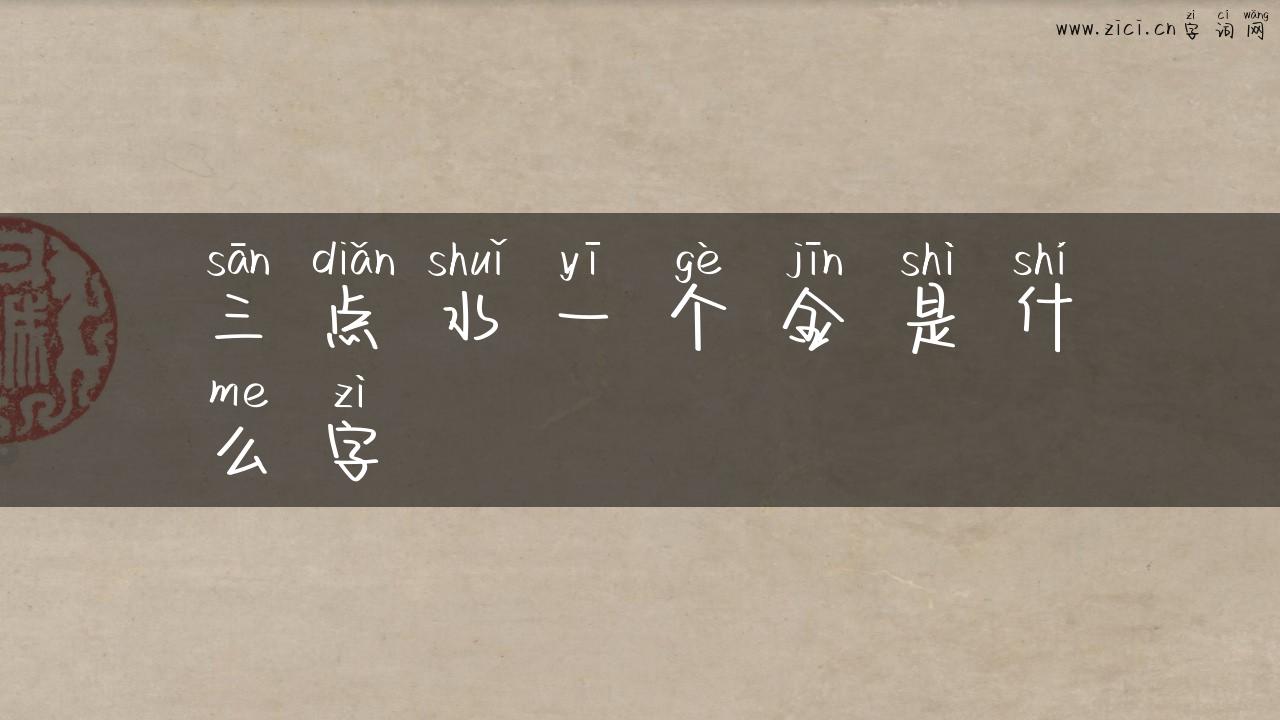 zì cí wǎng
www.zici.cn 字词网
sān diǎn shuǐ yī gè jīn shì shí
三点水一个金是什
me zì
么字